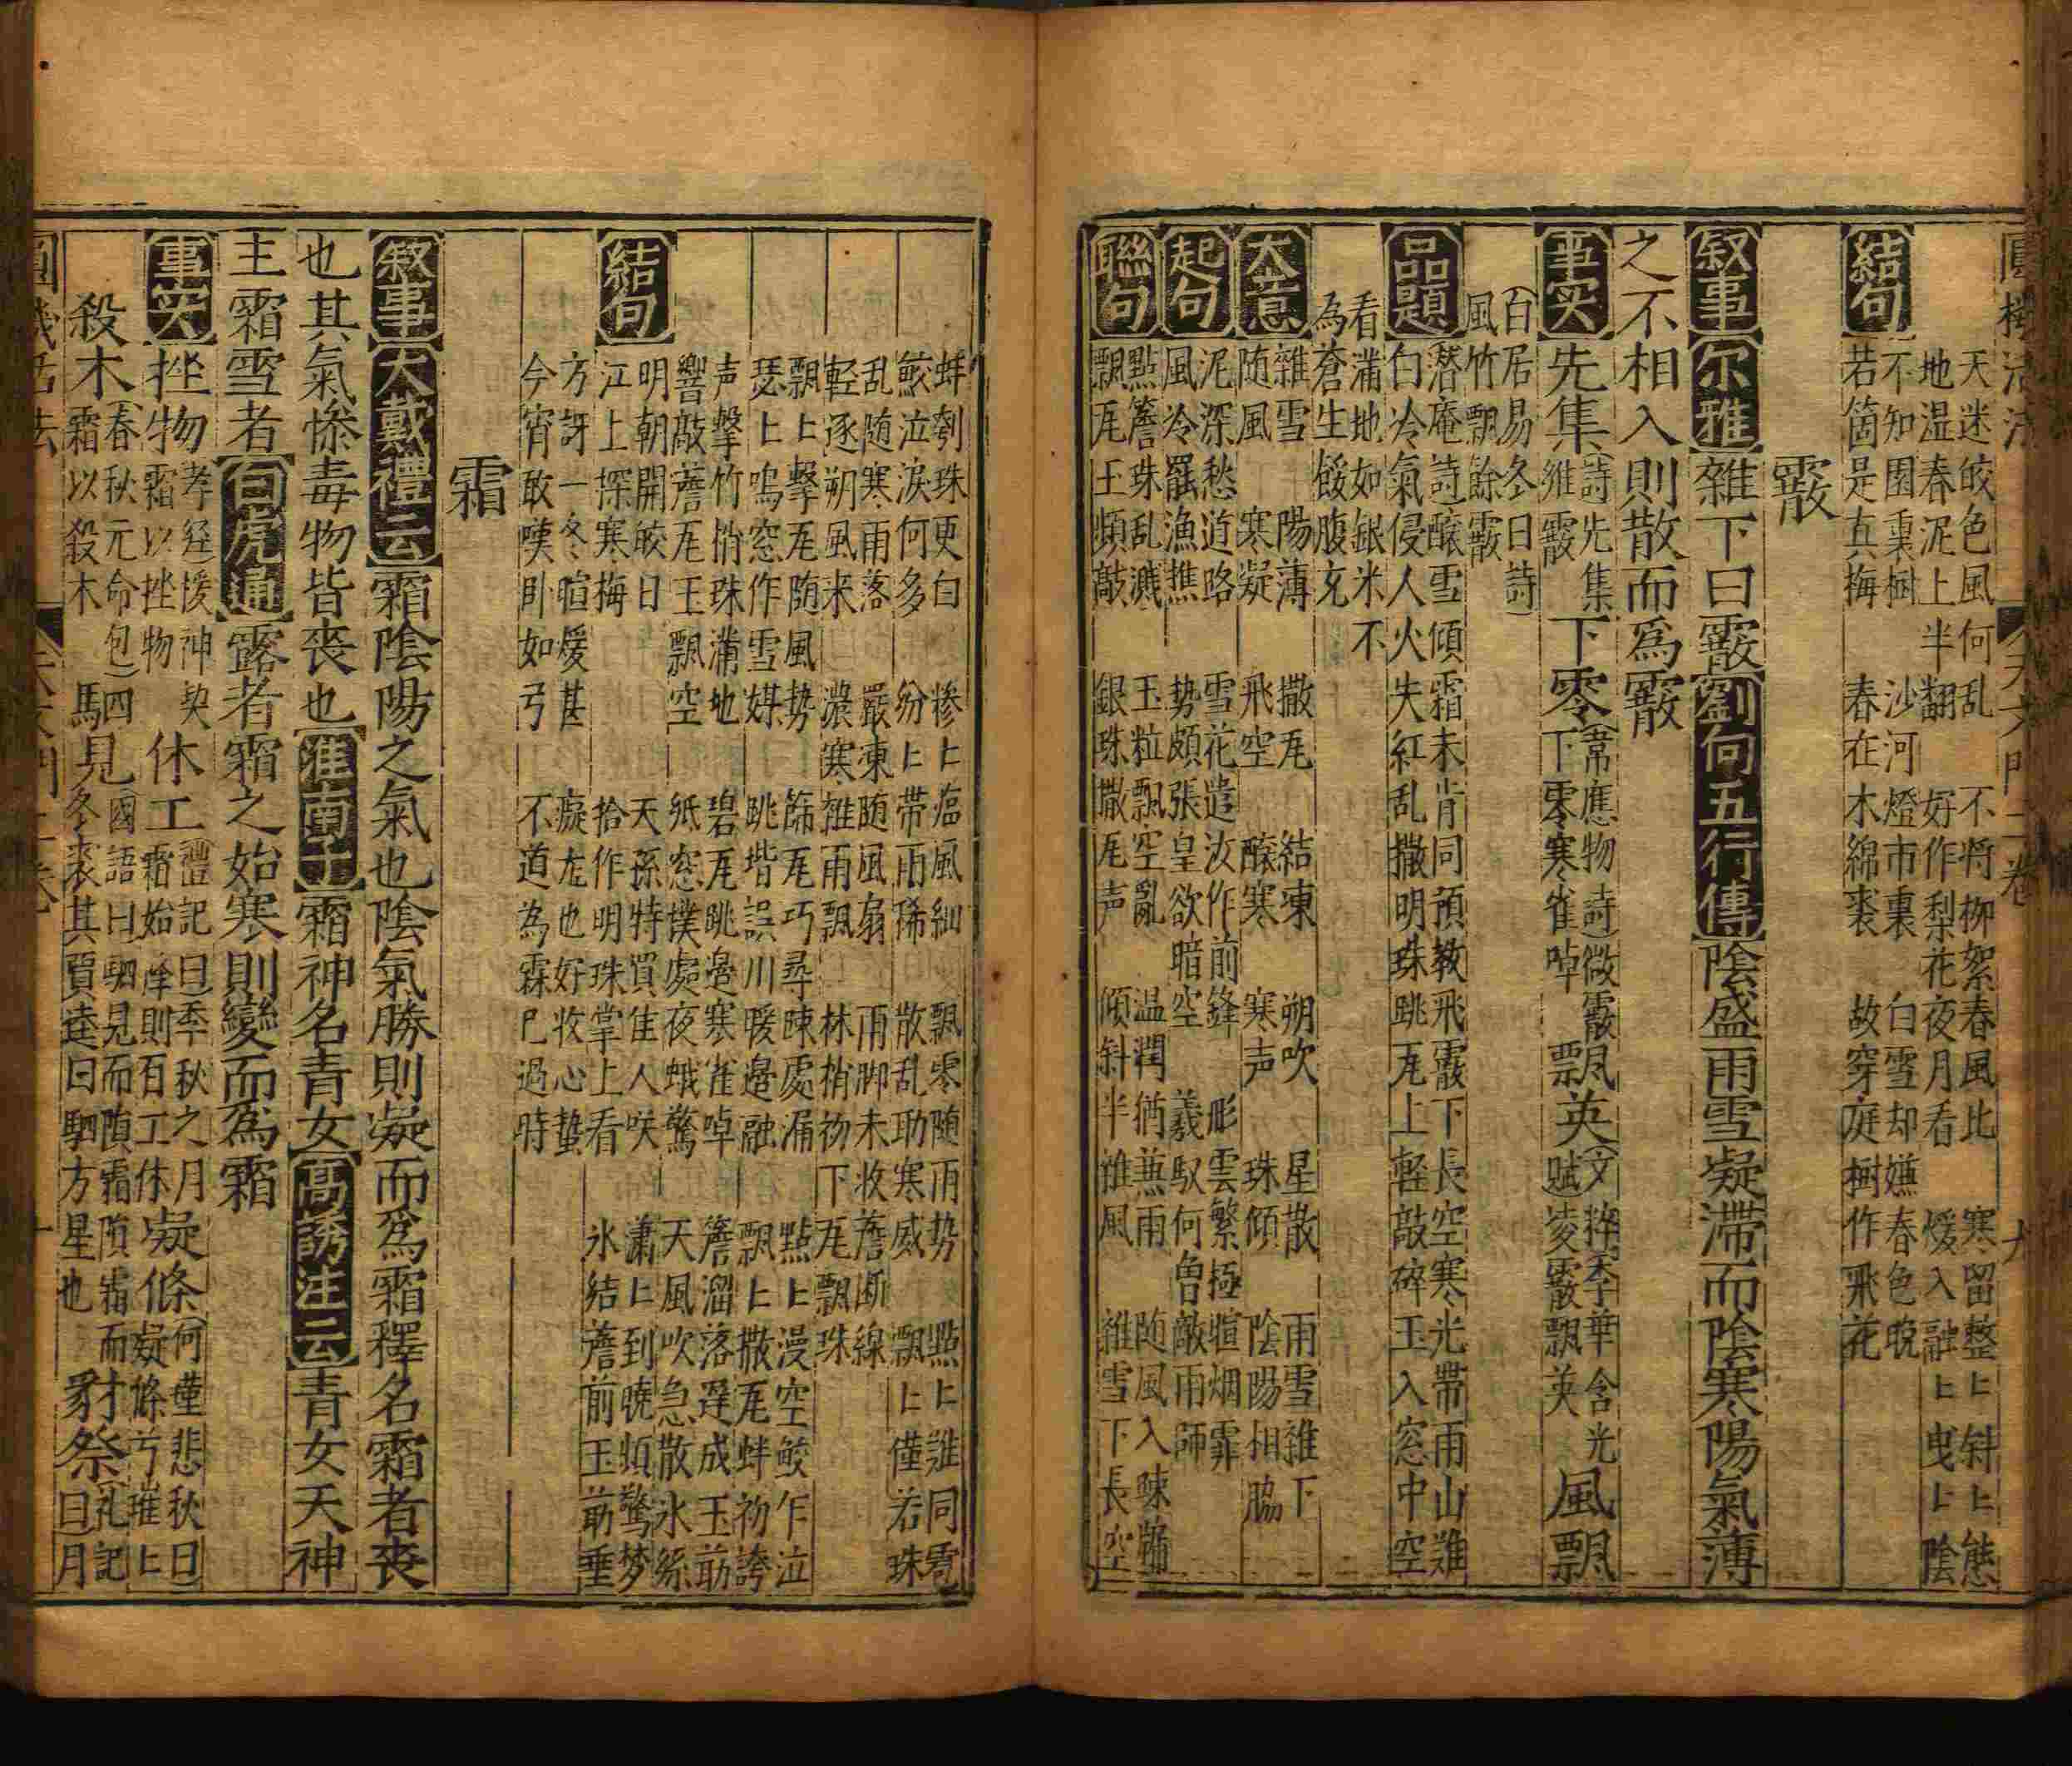 天迷皎色風何乱 不将柳絮春風比 寒留整〻斜〻態
地湿春泥上半翻 好作梨花夜月看 煖入融〻曳〻陰
結句
不知園裏樹 沙河燈市裏 白雪却嫌春色晚
若箇是真梅 春在木綿裘 故穿庭樹作飛花
霰
叙事 尔雅 雜下曰霰 劉向五行傳 陰盛雨雪凝滯而陰寒陽氣薄
之不相入則散而爲霰
事实 先集(詩先集維霰) 下零(韋應物詩)微霰下零寒雀啅 飄英(文粹李華含光賦)凌霰飄英 風飄
(百居易冬日詩)風竹飄餘霰
品題 潜庵詩 釀雪傾霜未肯同預教飛霰下長空寒光帶雨山難
白冷氣侵人火失紅乱撒明珠跳瓦上軽敲碎玉入窓中空
看蒲地如銀米不
為蒼生餒腹充
大意 雜雪 陽薄 撒瓦 結凍 朔吹 星散 雨雪雜下
随風 寒凝 飛空 釀寒 寒声 珠傾 陰陽相脇
起句 泥深愁道路 雪花遣汝作前鋒 彤雲繁極暄烟霏
風冷罷漁樵 势頗張皇欲暗空 羲馭何曽敵雨師
聯句 點簷珠乱濺 玉粒飄空亂 温潤猶蕪雨 随風入疎牖
飄瓦玉頻敲 銀珠撒瓦声 傾斜半雜風 雜雪下長空
蚌刳珠更白 糝〻瘟風細 飄零随雨势 點〻雖同雹
鮫泣淚何多 紛〻带雨稀 散乱助寒威 飄〻僅若珠
乱随寒雨落 嚴凍随風扇 雨脚未收簷断線
輕逐朔風来 濃寒雜雨飄 林梢初下瓦飄珠
飄〻擊瓦随風势 篩瓦巧尋疎處漏 點〻漫空鮫乍泣
瑟〻鳴窓作雪媒 跳堦誤川暖邊融 飄〻撒瓦蚌初誇
声擊竹梢珠蒲地 碧瓦跳邊寒雀啅 簷溜落遅成玉筯
響敲簷瓦玉飄空 紙窓撲處夜蛾驚 天風吹急散氷絲
結句
明朝開皎日 天孫特買佳人咲 瀟〻到曉頻驚梦
江上探寒梅 拾作明珠掌上看 氷結簷前玉筯垂
方訝一冬暄煖甚 癡尨也好收心蟄
今宵敢嘆卧如弓 不道為霖已過時
霜
叙事 大戴禮云 霜陰陽之氣也陰氣勝則凝而爲霜釋名霜者喪
也其氣慘毒物皆喪也 淮南子 霜神名青女 高誘注云 青女天神
主霜雪者 白虎通 露者霜之始寒則變而爲霜
事实 挫物(孝経援神契)霜以挫物 休工(禮記曰)季秋之月霜始降則百工休 凝條(何蓳悲秋曰)凝條兮璀〻
殺木(春秋元命包)霜以殺木 駟見(國語曰駟見而隕霜隕霜而冬裘其賈逵曰駟方星也 豺祭(礼記曰月
圓機活法 天文門二卷